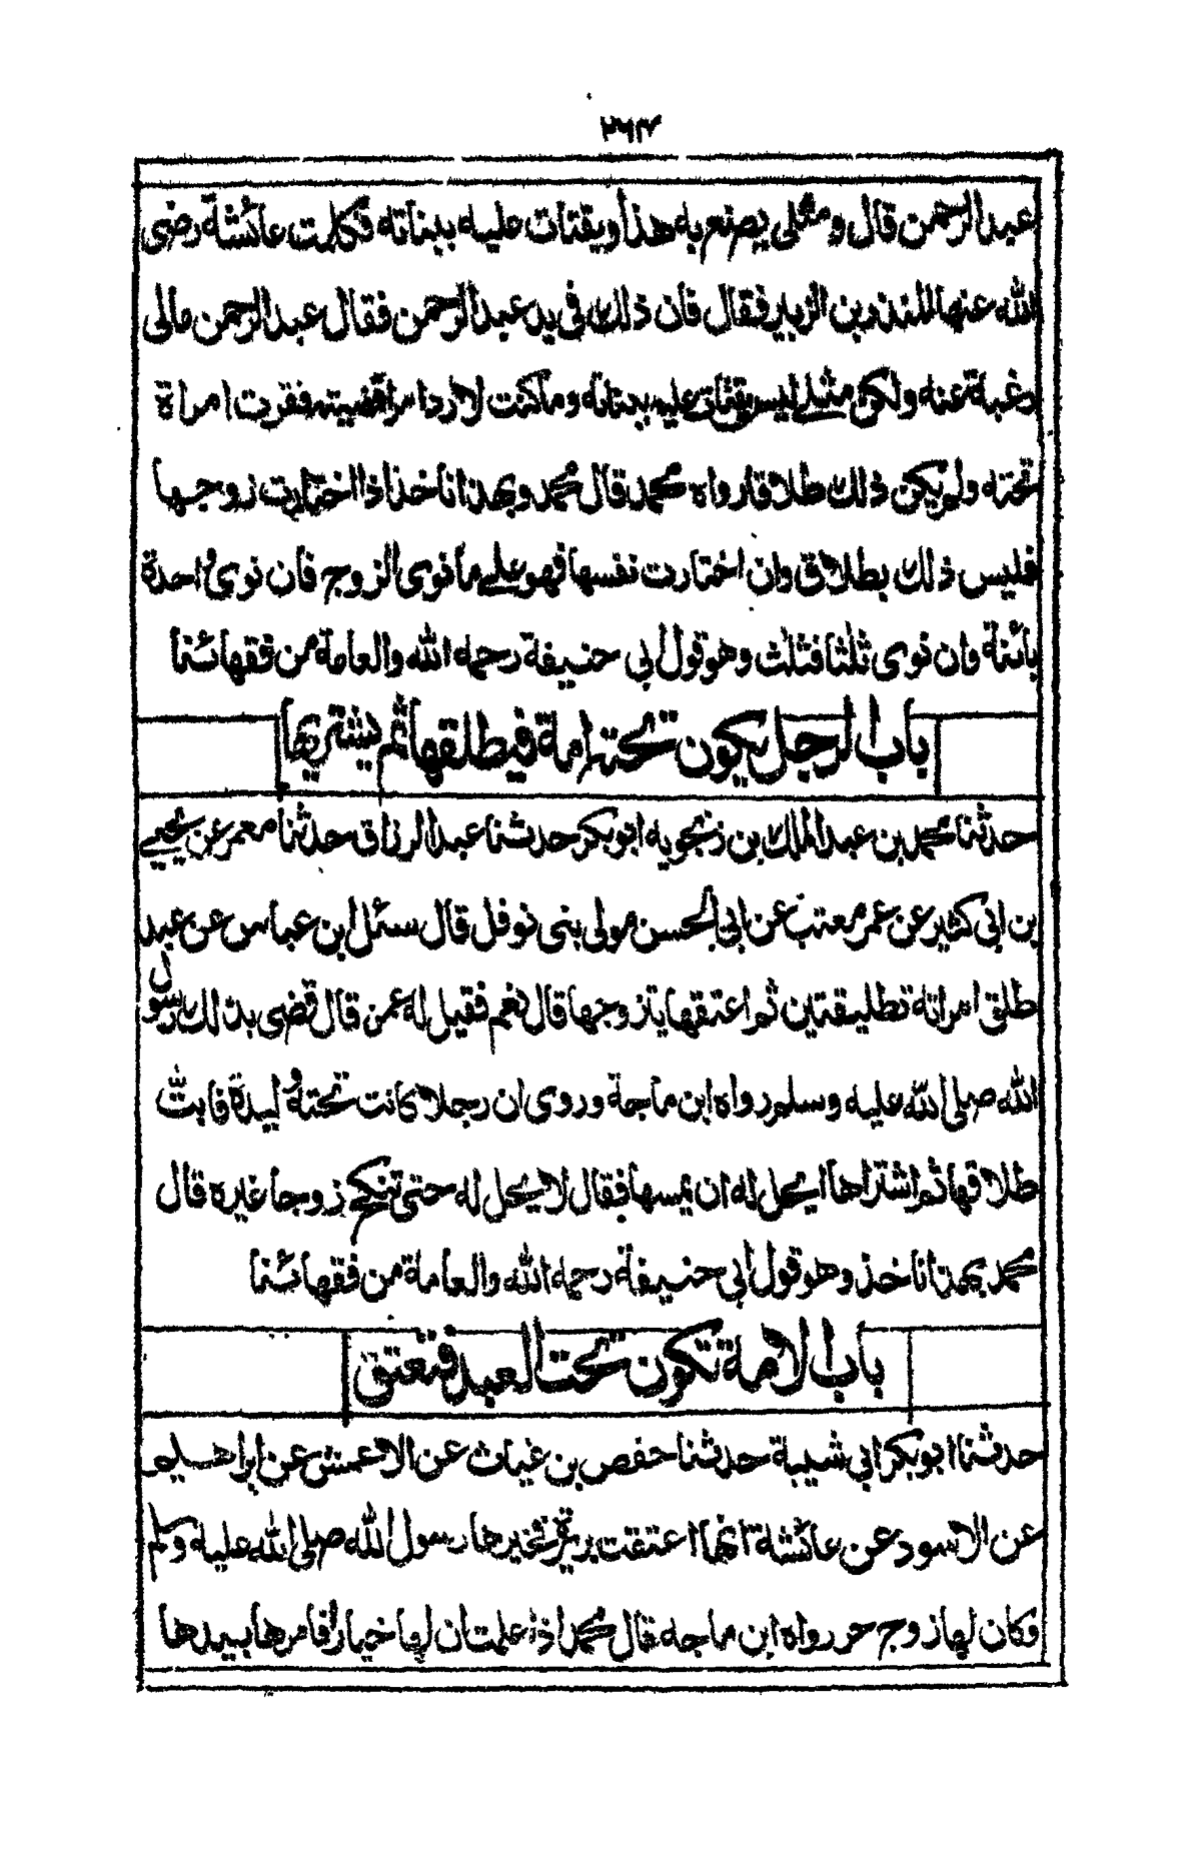 ٢٦٣
عبدالرحمن قال ومثلى يصنع به هذا ويفتات عليه ببناته فكلمت عائشة رضى
الله عنها المنذر بن الزبير فقال فان ذلك فى يد عبدالرحمن فقال عبدالرحمن مالى
رغبة عنه ولكن مثلى ليس يفتات عليه ببناته وما كنت لارد امرا قضيته فقرت امراة
تحته ولم يكن ذلك طلاقا رواه محمد قال محمد وبهذا ناخذ اذا اختارت زوجها
فليس ذلك بطلاق وان اختارت نفسها فهو على ما نوى الزوج فان نوى واحدة
بائنة وان نوى ثلثا فثلث وهو قول ابى حنيفة رحمه الله والعامة من فقهائنا
باب الرجل يكون تحته امة فيطلقها ثم يشتريها
حدثنا محمد بن عبدالملك بن زنجويه ابو بكر حدثنا عبدالرزاق حدثنا معمر عن يحيى
بن ابى كثير عن عمر معتب عن ابى الحسن مولى بنى نوفل قال سئل ابن عباس عن عبد
طلق امراته تطليقتين ثم اعتقها يتزوجها قال نعم فقيل له عمن قال قضى بذلك رسول
الله صلى الله عليه وسلم رواه ابن ماجة وروى ان رجلا كانت تحته وليدة فابتّ
طلاقها ثم اشتراها ايحل له ان يمسها فقال لا يحل له حتى تنكح زوجا غيره قال
محمد بهذا ناخذ وهو قول ابى حنيفة رحمه الله والعامة من فقهائنا
باب الامة تكون تحت العبد فتعتق
حدثنا ابو بكر ابى شيبة حدثنا حفص بن غياث عن الاعمش عن ابراهيم
عن الاسود عن عائشة انها اعتقت بريرة فخيرها رسول الله صلى الله عليه وسلم
وكان لها زوج حر رواه ابن ماجه قال محمد اذا علمت ان لها خيارا فامرها بيدها